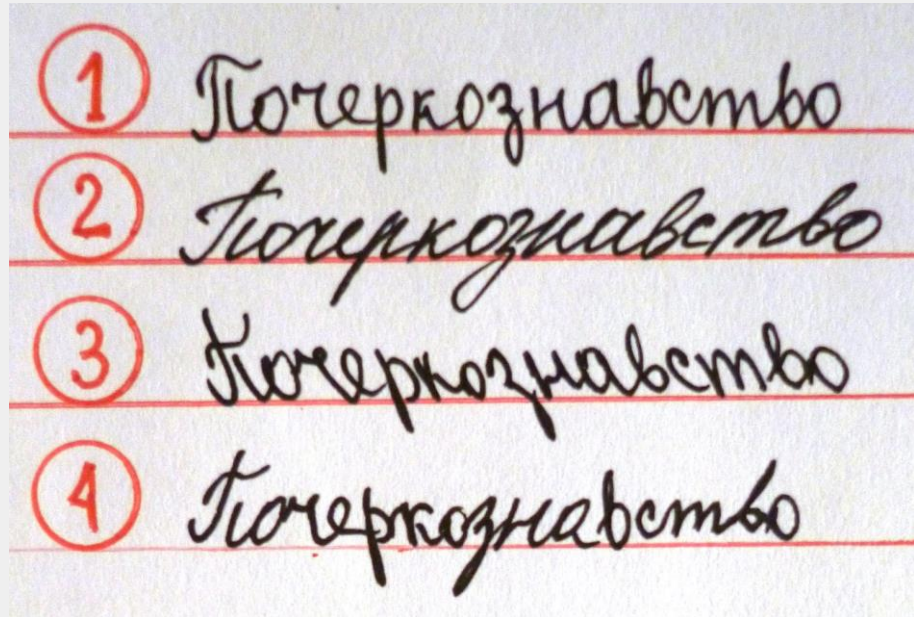 1 Почеркознавство
2 Почеркознавство
3 Почеркознавство
4 Почеркознавство